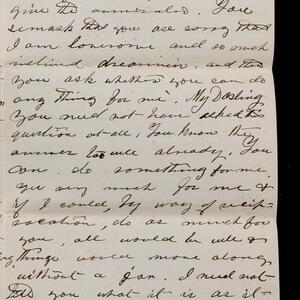 give the
remark that you are sorry that
I am lonesome and so much
inclined dreamier, and the
you ask whether you can do
any thing for me. My Darling
you need not have asked the
question at all, You know the
answer too well already. You
can do something for me,
very much for me &
if I could, by way of recip-
rocation, do as much for
you, all would be well &
things would move along
without a jar. I need not
tell you what it is as it